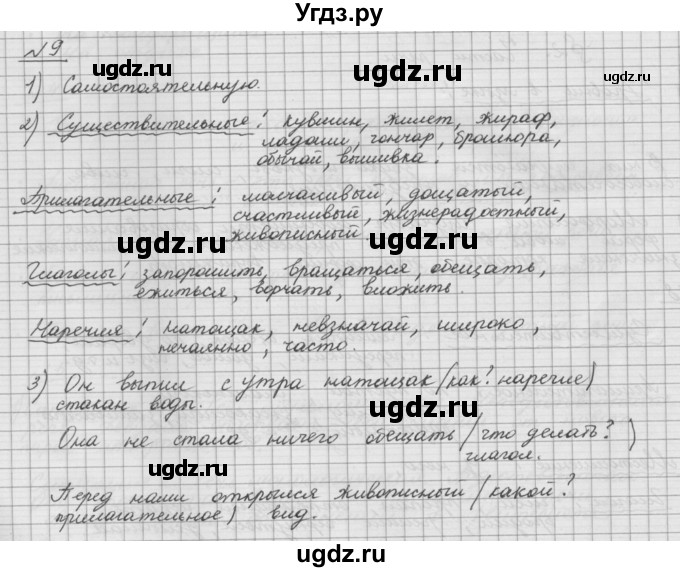 Угдз.ру
№9
1) Самостоятельную.
2) Существительные: кувшин, жилет, жираф,
ладоши, гончар, брошюра,
обычай, вышивка.
Прилагательные: молчаливый, дощатый,
счастливый, жизнерадостный,
живописный.
Глаголы: запорошить, вращаться, обещать,
ежиться, ворчать, вложить.
Наречия: натощак, невзначай, широко,
нечаянно, часто.
3) Он выпил с утра натощак (как? наречие)
стакан воды.
Она не стала ничего обещать (что делать?
глагол.)
Перед нами открылся живописный (какой?
прилагательное) вид.
ugdz.ru
ugdz.ru
ugdz.ru
ugdz.ru
ugdz.ru
ugdz.ru
ugdz.ru
ugdz.ru
ugdz.ru
ugdz.ru
ugdz.ru